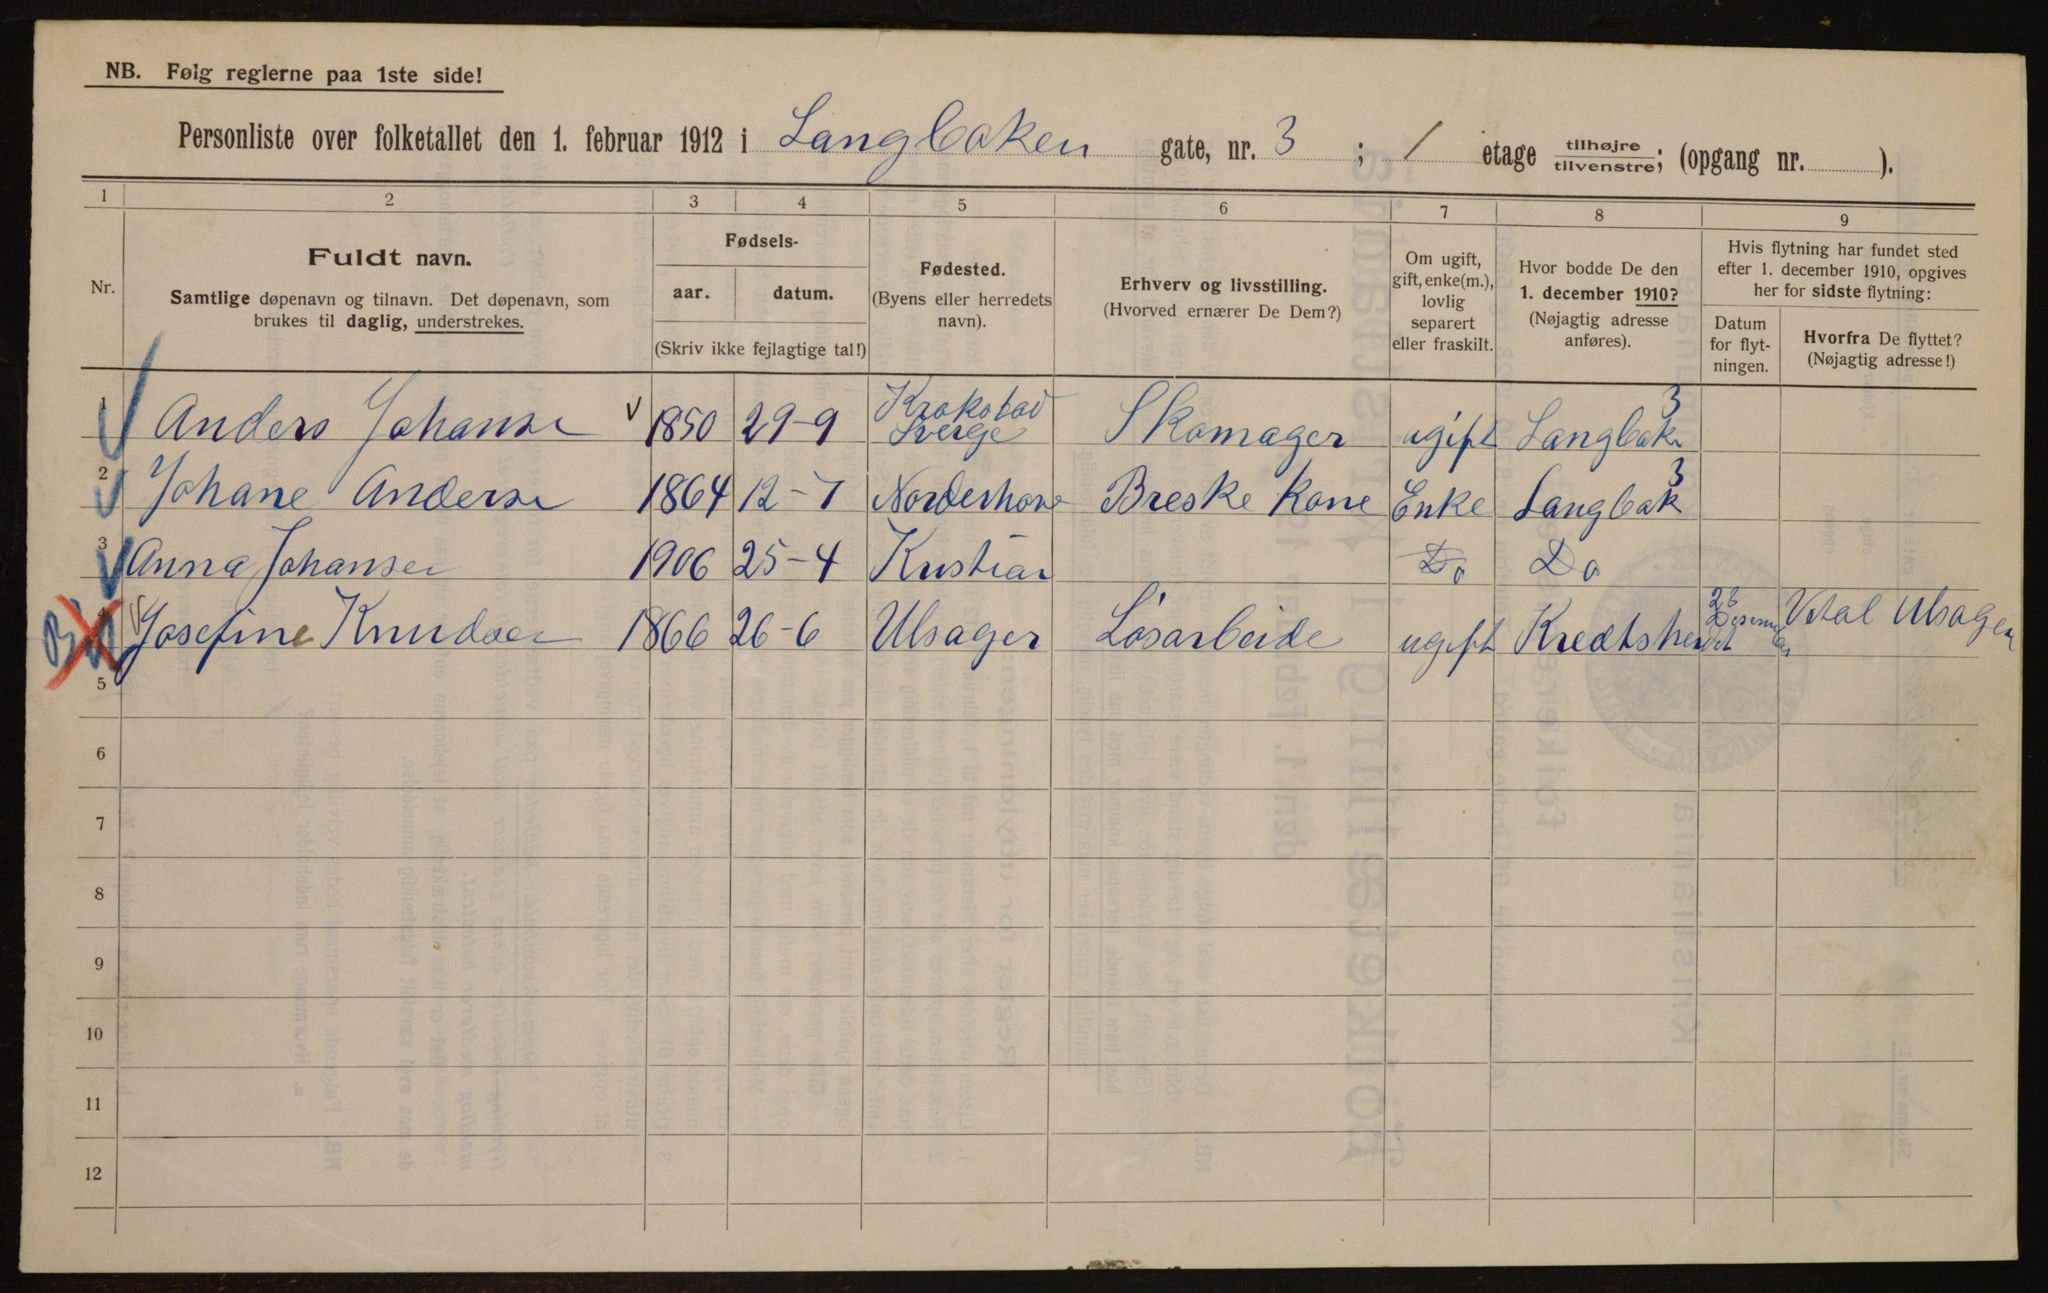 NB. Følg reglerne paa 1ste side!
Personliste over folketallet den 1. februar 1912 i Langbaken gate, nr. 3 ; 1 etage tilhøjre tilvenstre; (opgang nr. ).
1 2 3 4 5 6 7 8 9
Nr.
Fuldt navn.
Samtlige døpenavn og tilnavn. Det døpenavn, som
brukes til daglig, understrekes.
Fødsels-
aar. datum.
(Skriv ikke fejlagtige tal!)
Fødested.
(Byens eller herredets
navn).
Erhverv og livsstilling.
(Hvorved ernærer De Dem?)
Om ugift,
gift, enke(m.),
lovlig
separert
eller fraskilt.
Hvor bodde De den
1. december 1910?
(Nøjagtig adresse
anføres).
Hvis flytning har fundet sted
efter 1. december 1910, opgives
her for sidste flytning:
Datum
for flyt-
ningen.
Hvorfra De flyttet?
(Nøjagtig adresse!)
1 Anders Johanse 1850 29-9 Krokstad Sverge Skomager ugift Langbak 3
2 Johane Anderse 1864 12-7 Norderhov Vreske Kone Enke Langbak 3
3 Anna Johansen 1906 25-4 Kristian Do Do
4 Josefine Knudsen 1866 26-6 Ulsager Løsarbeide ugift 23 Ulsager
5
6
7
8
9
10
11
12